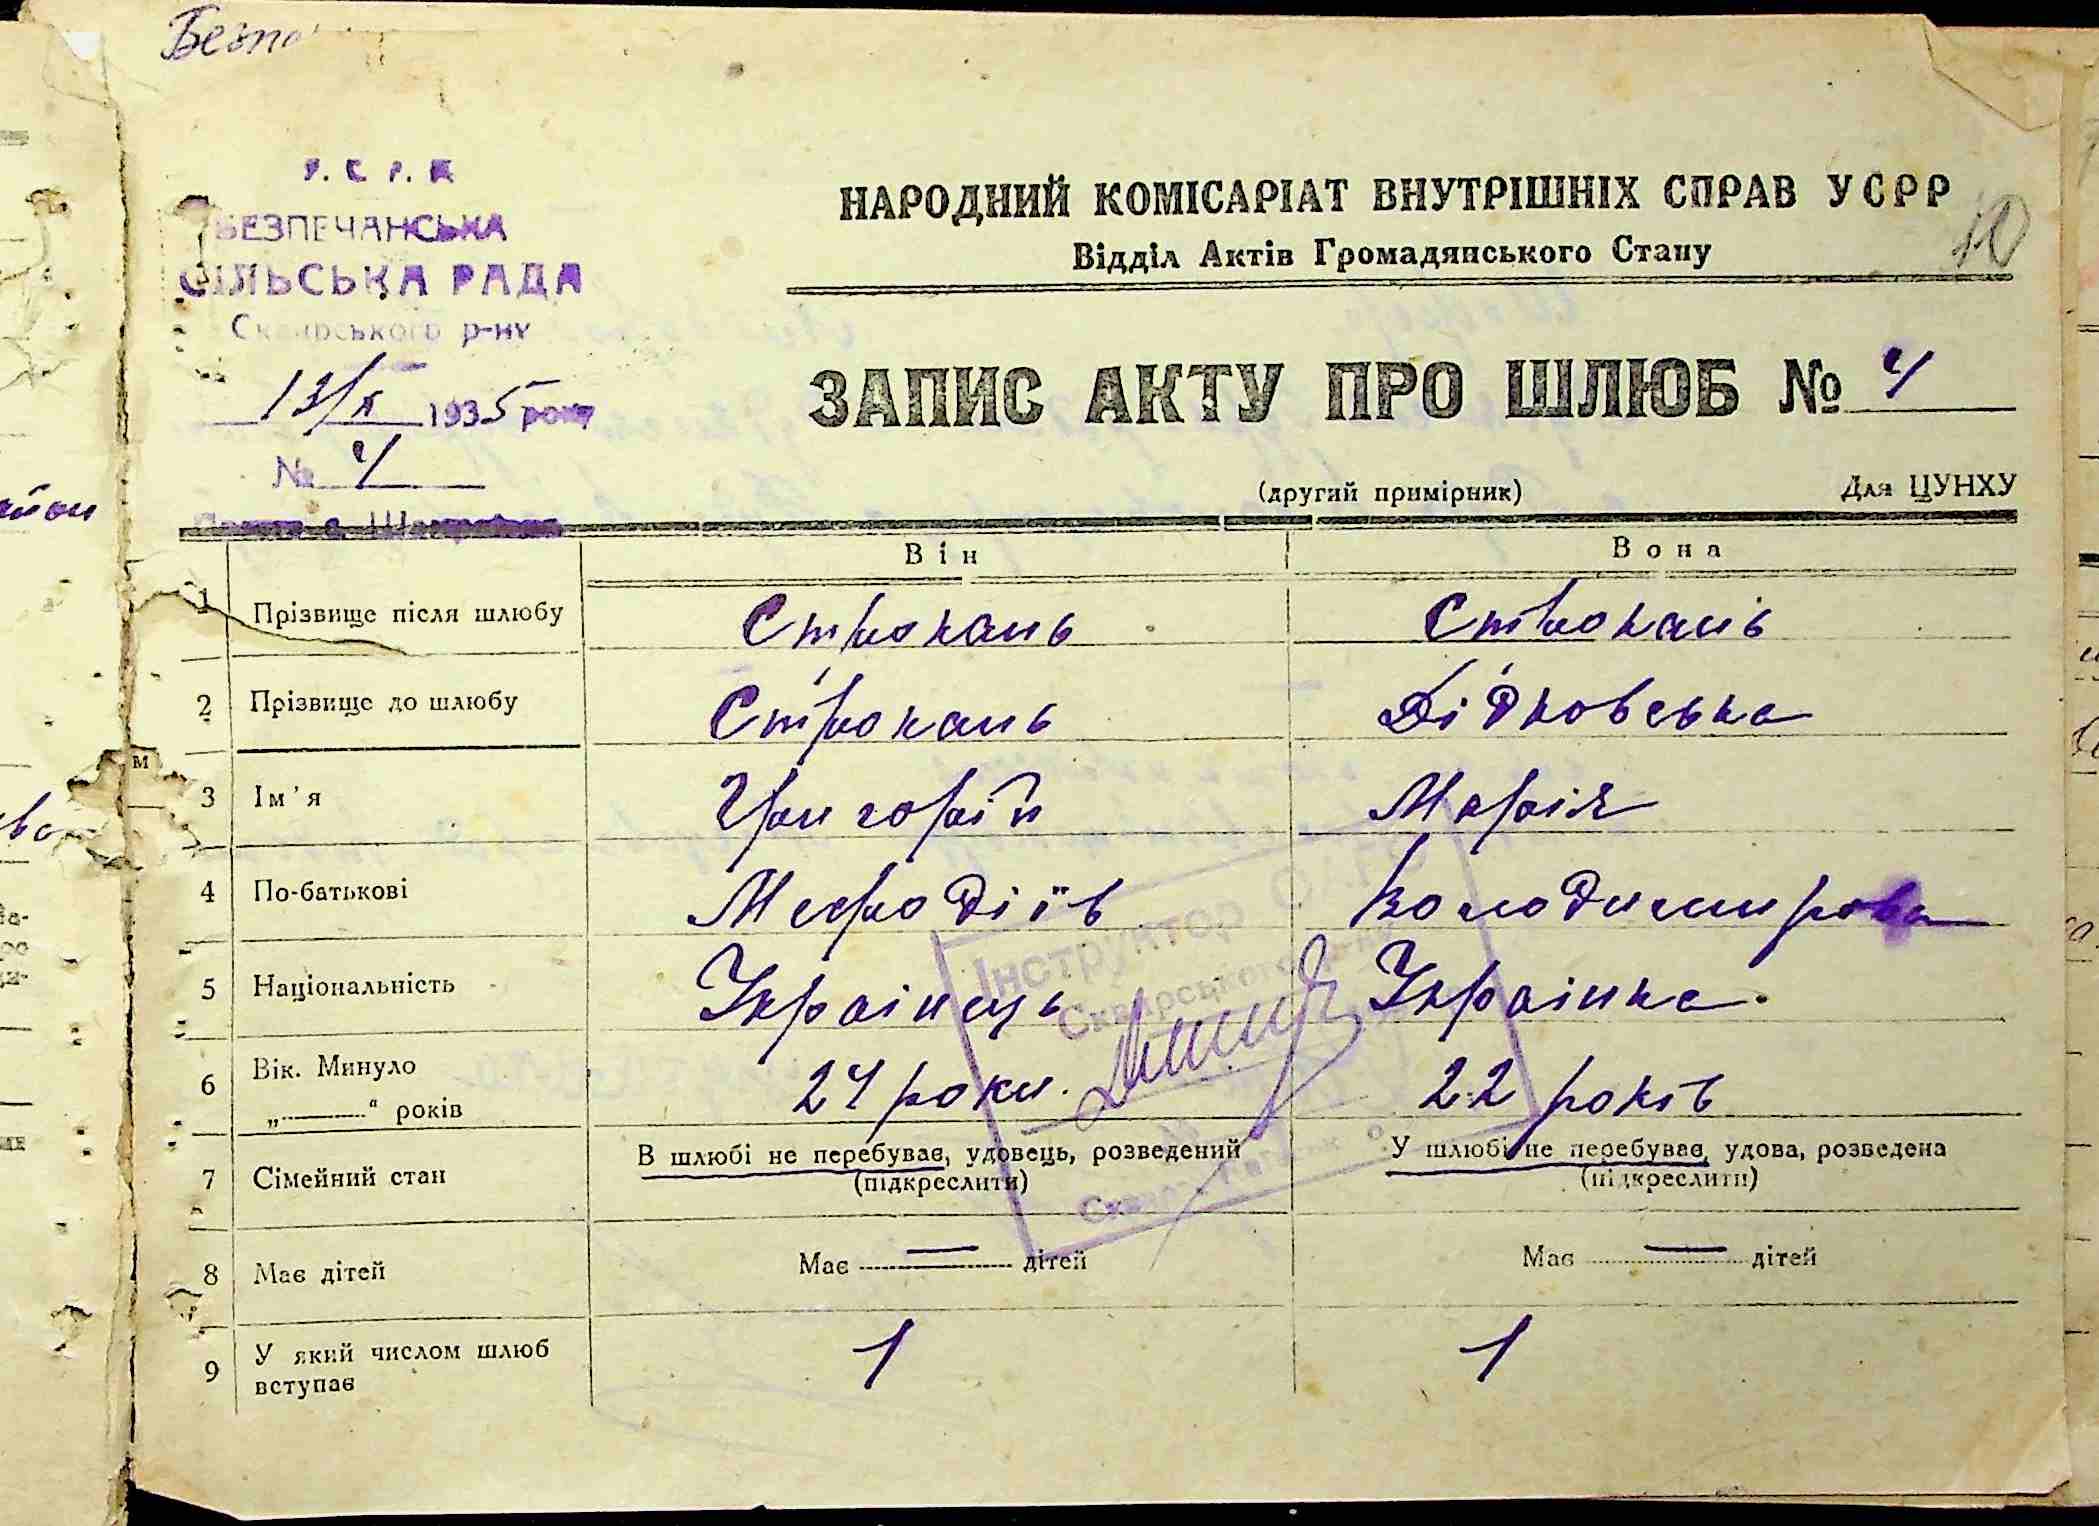 Безпе
У. С. Р. Р.
БЕЗПЕЧАНСЬКА
СІЛЬСЬКА РАДА
Сквирського р-ну
13/X 1935 року
№ 4
НАРОДНИЙ КОМІСАРІАТ ВНУТРІШНІХ СПРАВ УСРР
10
Відділ Актів Громадянського Стану
ЗАПИС АКТУ ПРО ШЛЮБ № 4
(другий примірник) Для ЦУНХУ
Він Вона
1 Прізвище після шлюбу Строкань Строкань
2 Прізвище до шлюбу Строкань Дідковська
3 Ім'я Григорій Марія
4 По-батькові Мефодіїв Володимирова
5 Національність Українець Українка
6 Вік. Минуло „ “ років 24 роки. 22 років
7 Сімейний стан В шлюбі не перебуває, удовець, розведений (підкреслити) У шлюбі не перебуває, удова, розведена (підкреслити)
8 Має дітей Має — дітей Має — дітей
9 У який числом шлюб вступає 1 1
Інструктор ОАГС
Сквирського